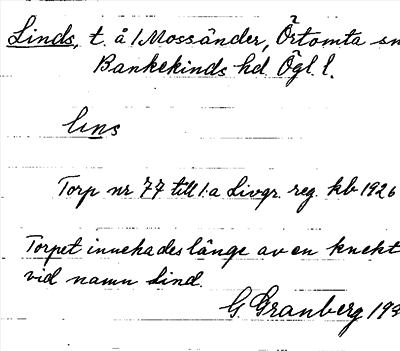 Linds, t. å 1 Mossänder, Örtomta sn
Bankekinds hd. Ögl. l.
lins
Torp nr 77 till 1:a Livgr. reg. kb 1926
Torpet innehades länge av en knekt
vid namn Lind.
G. Granberg 19